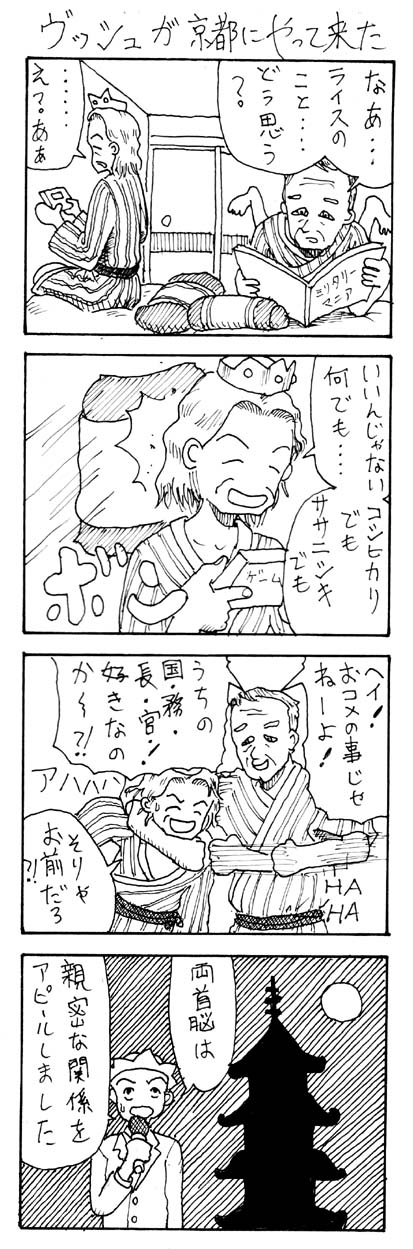 ヴッシュが京都にやって来た
なあ…
ライスの
こと…
どう思う
?
……
え?あぁ
ミリタリー
マニア
いいんじゃない
何でも…
コシヒカリ
でも
ササニシキ
でも
ゲーム
ボーン
ヘイ!
おコメの事じゃ
ねーよ!
うちの
国・務・
長・官・!
好きなの
か〜?!
アハハハ
そりゃ
お前だろ
?!
HA
HA
両首脳は
親密な関係を
アピールしました